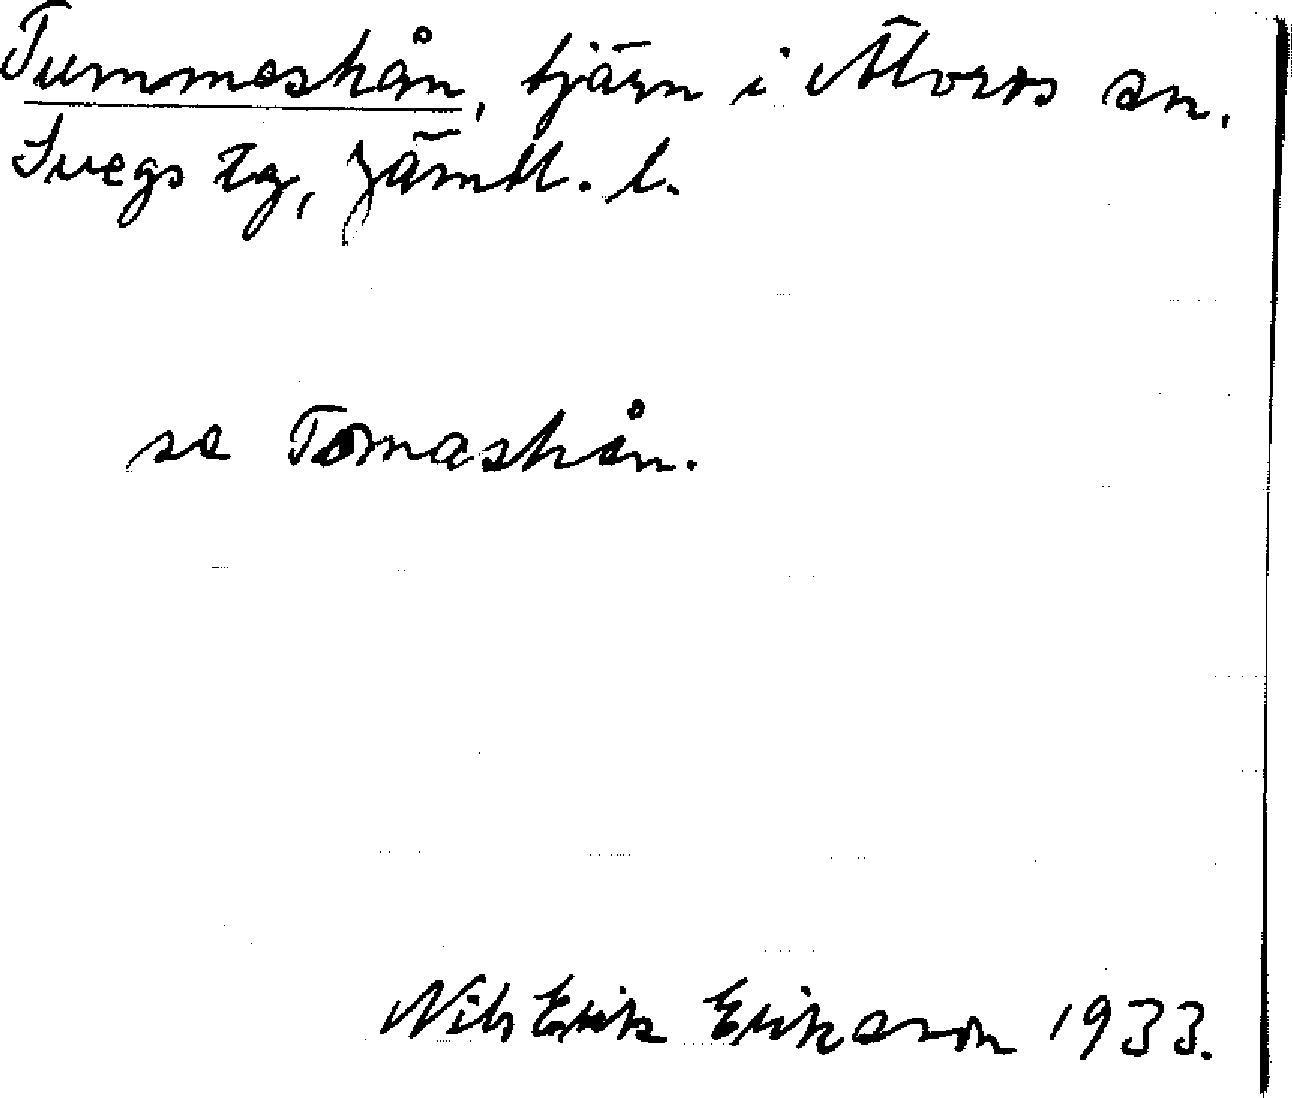 Tummeshån, tjärn i Älvros sn.
Svegs tg, Jämtl. l.
se Tomashån.
Nils Erik Eriksson 1933.